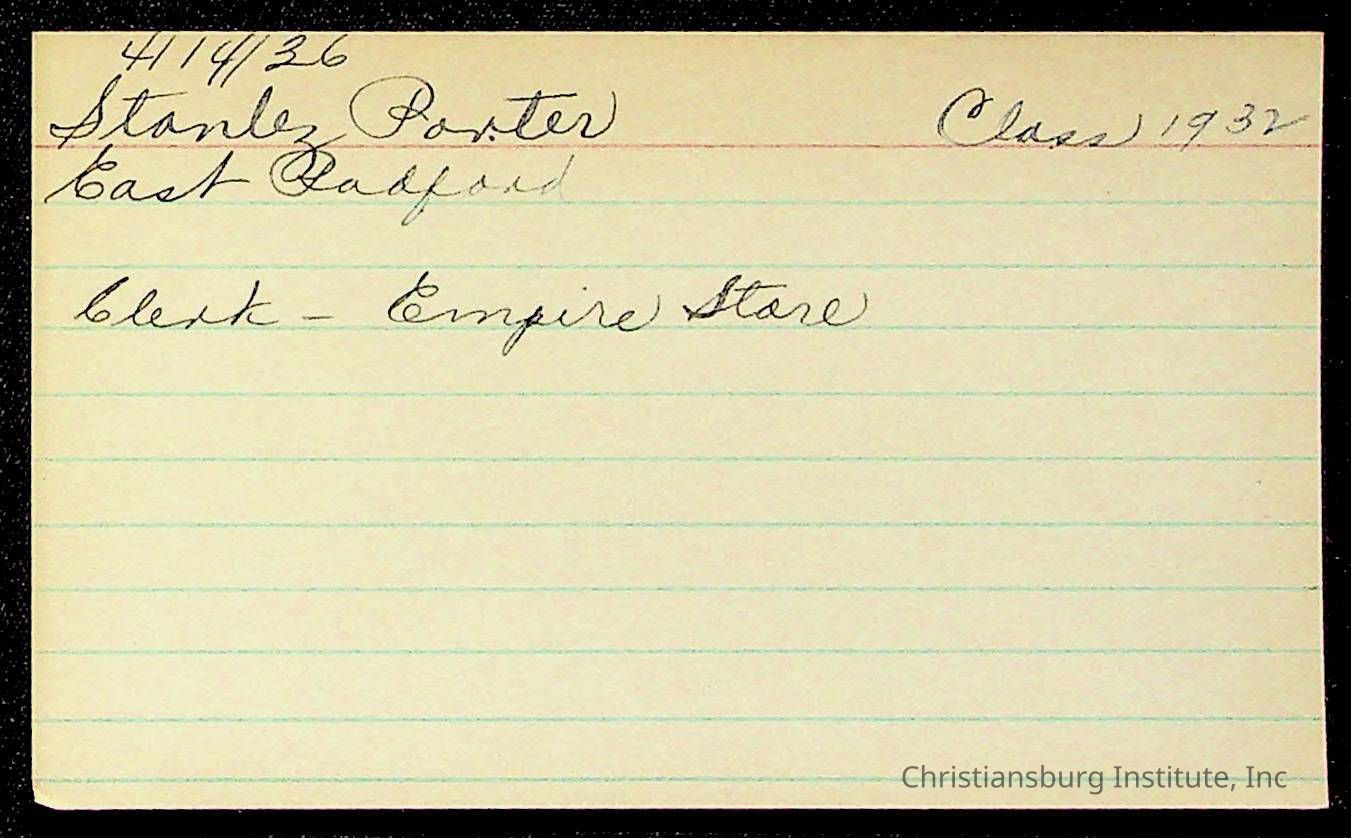 4/14/36
Stanley Porter Class 1932
East Radford
Clerk - Empire Store
Christiansburg Institute, Inc